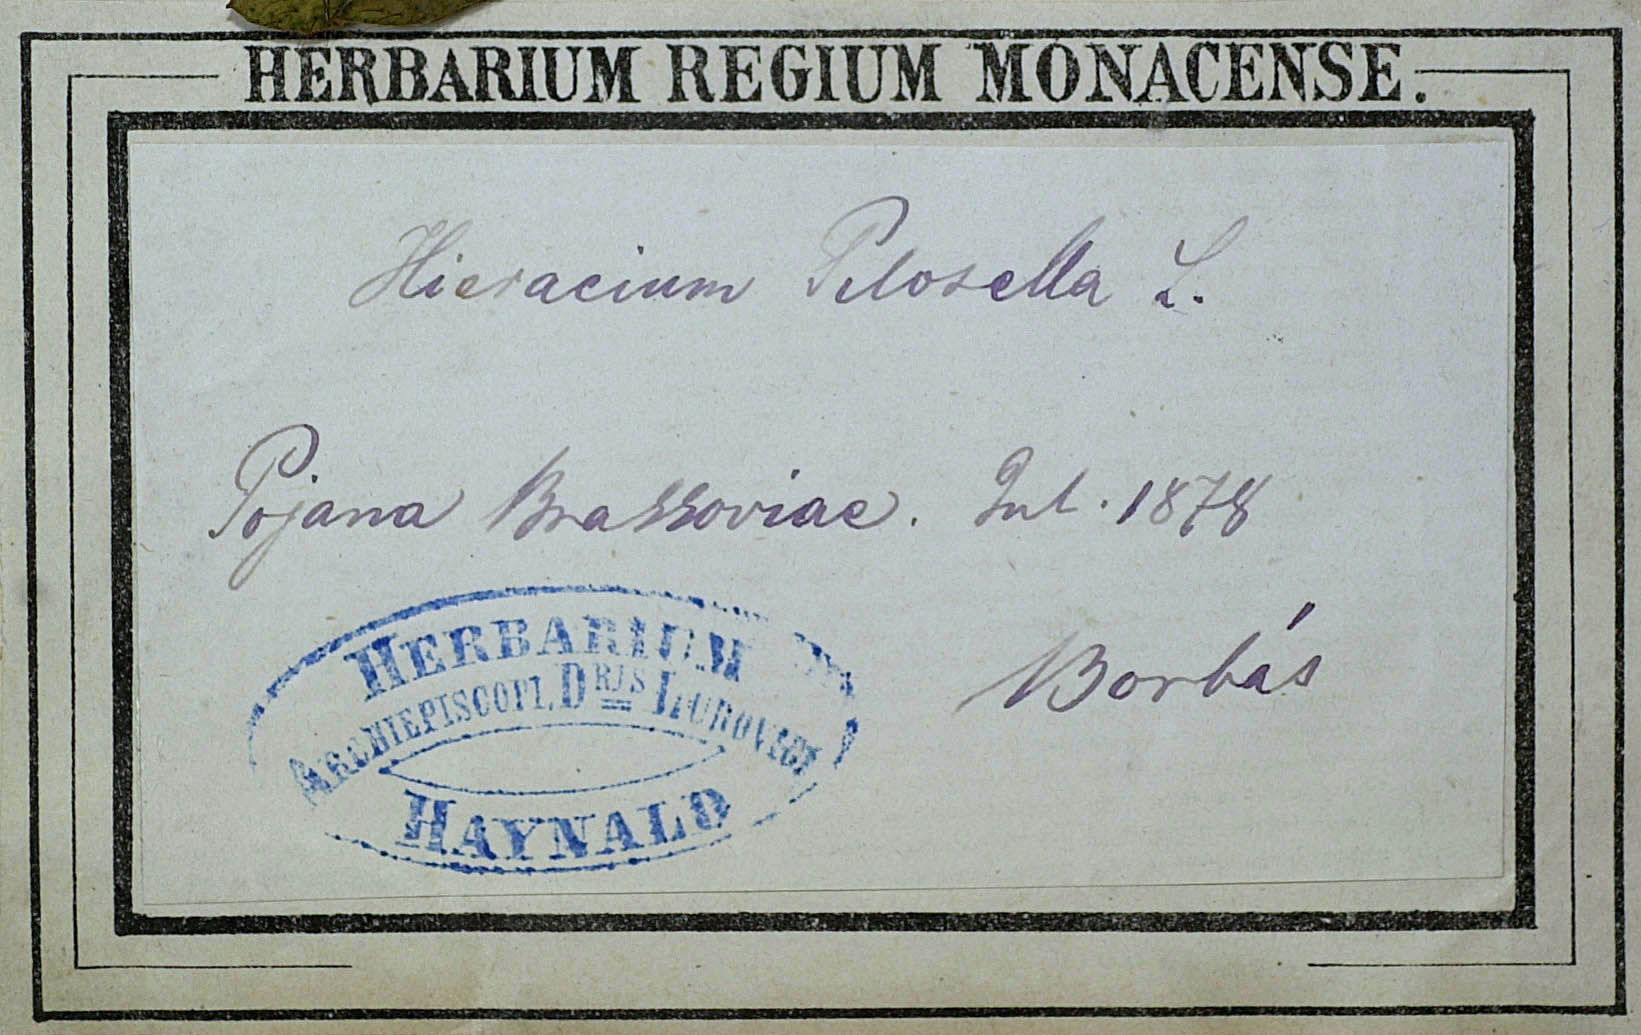 HERBARIUM REGIUM MONACENSE.
Hieracium Pilosella L.
Pojana Brassoviae. Jul. 1878
Borbás
HERBARIUM
ARCHIEPISCOPI. DRIS LUDOVICI
HAYNALD